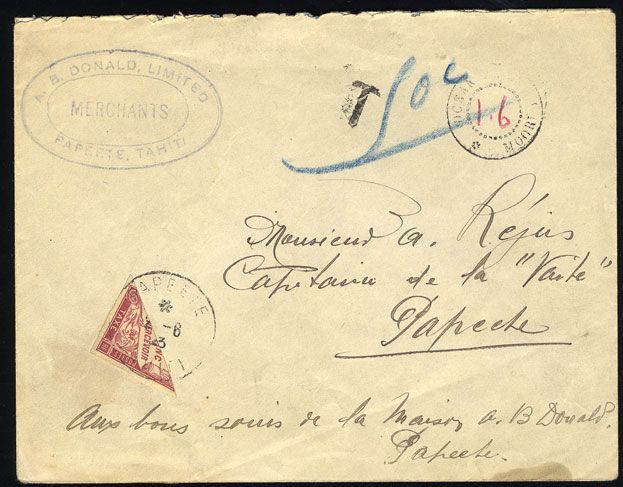 A. B. DONALD, LIMITED
MERCHANTS
PAPEETE, TAHITI
T
50c
OCEAN
1·6
MOOR
Monsieur A. Réjus
Capitaine de la "Vaite"
Papeete
PAPEETE
-6
3
TAXE
PERCEVOIR
Aux bons soins de la Maison A. B Donald.
Papeete